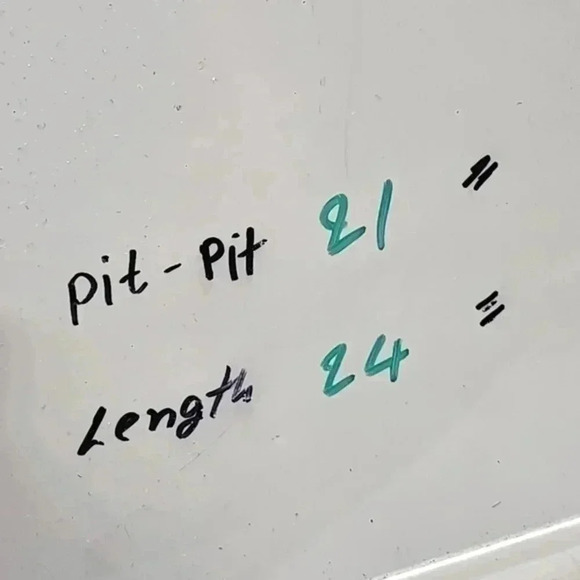 Pit - Pit 21 "
Length 24 "